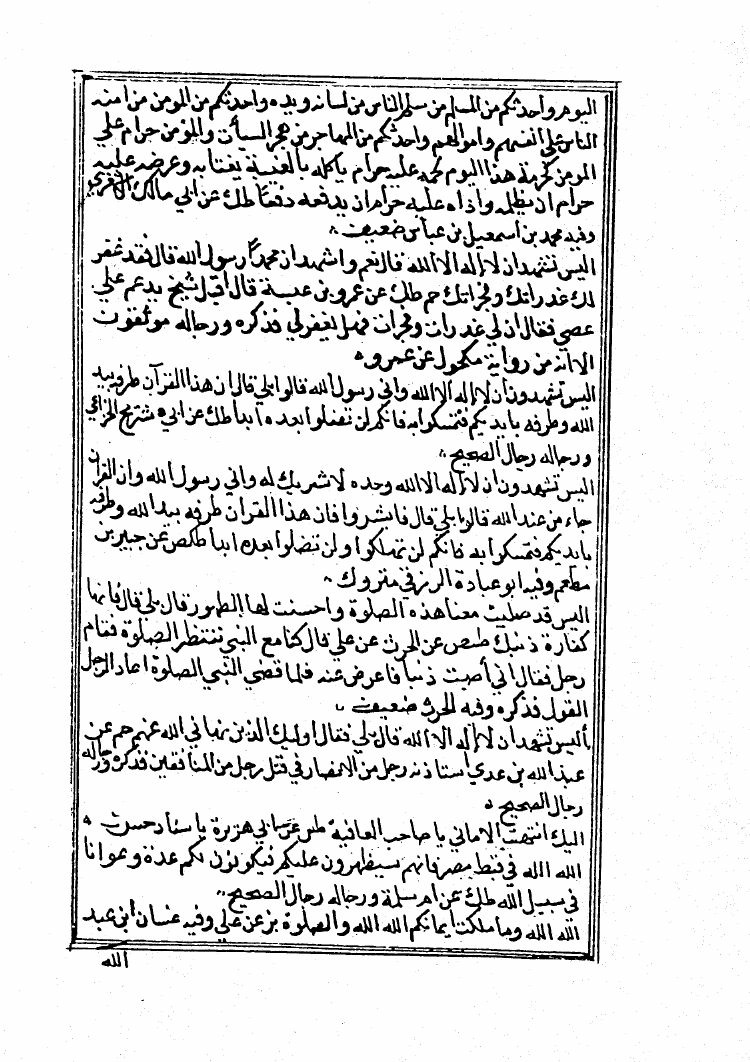 اليوم واحدثكم من المسلم من سلم الناس من لسانه ويده واحدثكم من المومن من امنه
الناس علي انفسهم واموالهم واحدثكم من المهاجر من هجر السيأت والمؤمن حرام علي
المومن كحرمة هذا اليوم لحمه عليه حرام ياكله بالغيبة يغتابه وعرضه عليه
حرام ان يظلمه واذاه عليه حرام ان يدفعه دفعًا طك عن ابي مالك الاشعري
وفيه محمد بن اسمعيل بن عباس ضعيف
اليس تشهد ان لا اله الا الله قال نعم واشهد ان محمدًا رسول الله قال فقد غفر
لك غدراتك وفجراتك حم طك عن عمرو بن عبسة قال اقبل شيخ يدعم علي
عصي فقال ان لي غدرات وفجرات فهل يغفر لي فذكره ورجاله موثقون
الا انه من رواية مكحول عن عمرو
اليس تشهدون أن لا اله الا الله واني رسول الله قالوا بلي قال ان هذا القرآن طرفه بيد
الله وطرفه بايديكم فتمسكوا به فانكم لن تضلوا بعده ابدا طك عن ابي شريح الخزاعي
ورجاله رجال الصحيح
اليس تشهدون أن لا اله الا الله وحده لا شريك له واني رسول الله وان القران
جاء من عند الله قالوا بلي قال فابشروا فان هذا القران طرفه بيد الله وطرفه
بايديكم فتمسكوا به فانكم لن تهلكوا ولن تضلوا بعده ابدا طكص عن جبير بن
مطعم وفيه ابو عبادة الزرقي متروك
اليس قد صليت معنا هذه الصلوة واحسنت لها الطهور قال بلي قال فانها
كفارة ذنبك طص عن الحرث عن علي قال كنا مع النبي ننتظر الصلوة فقام
رجل فقال اني أصبت ذنبا فاعرض عنه فلما قضي النبي الصلوة اعاد الرجل
القول فذكره وفيه الحرث ضعيف
أليس تشهد ان لا اله الا الله قال بلي فقال اوليك الذين نهاني الله عنهم حم عن
عبد الله بن عدي استاذنه رجل من الانصار في قتل رجل من المنافقين فذكره ورجاله
رجال الصحيح
اليك انتهت الاماني يا صاحب العافية طس عن ابي هريرة باسناد حسن
الله الله في قبط مصر فانهم سيظهرون عليكم فيكونون لكم عدة وعوانا
في سبيل الله طك عن ام سلمة ورجاله رجال الصحيح
الله الله وما ملكت ايمانكم الله الله والصلوة بز عن علي وفيه غسان ابن عبد
الله